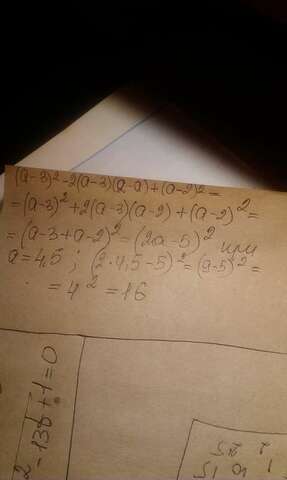 (a-3)²-2(a-3)(a-2)+(a-2)²=
=(a-3)²+2(a-3)(a-2)+(a-2)²=
=(a-3+a-2)²=(2a-5)² при
a=4,5; (2·4,5-5)²=(9-5)²=
=4²=16
²-138+1=0